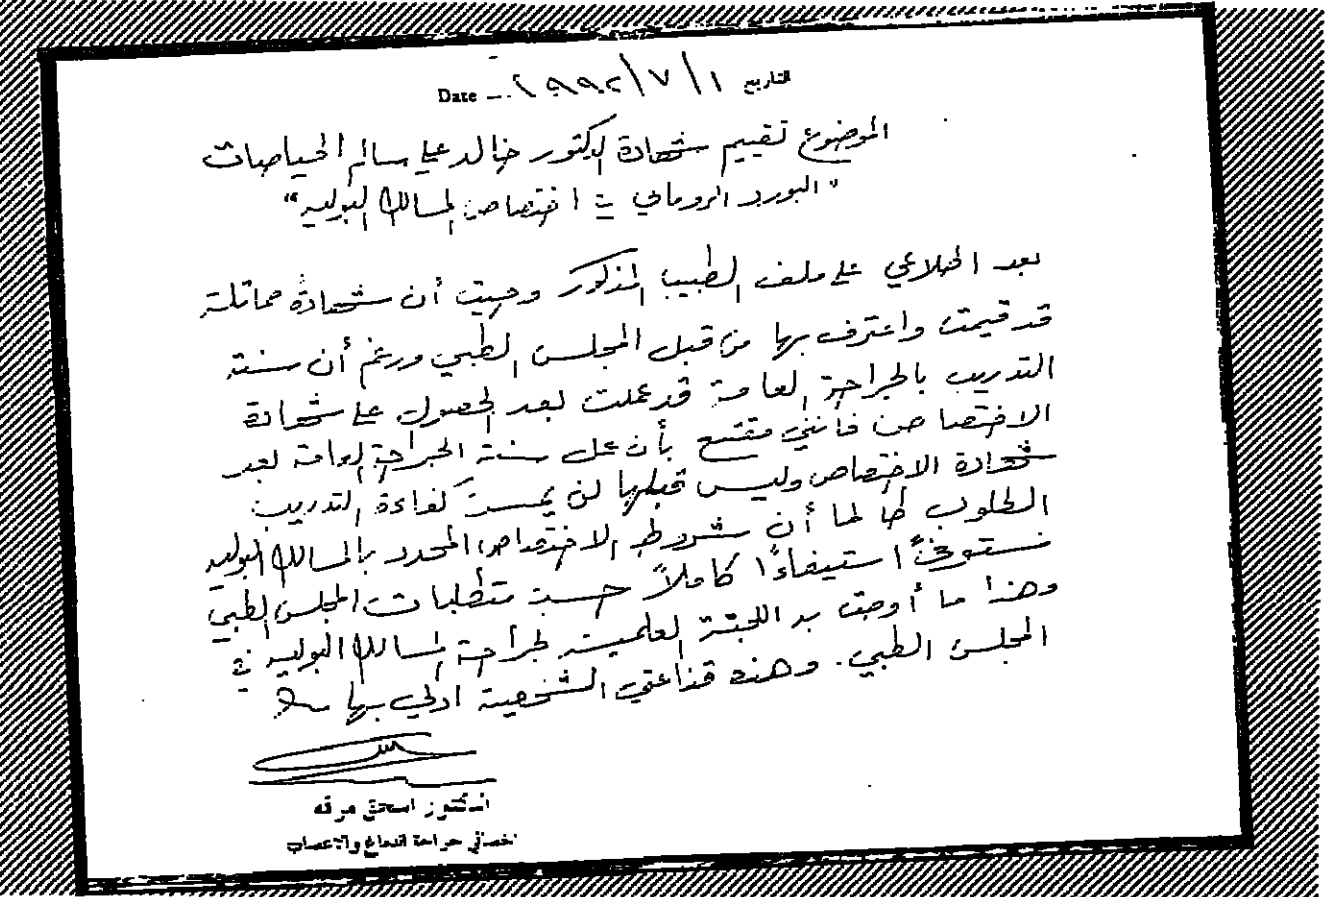 التاريخ ١/٧/١٩٩٢ Date
الموضوع تقييم شهادة الدكتور خالد علي سالم الحياصات
"البورد الروماني في اختصاص المسالك البولية"
بعد اطلاعي على ملف الطبيب المذكور وحيث أن شهادة مماثلة
قد قيمت واعترف بها من قبل المجلس الطبي ورغم أن سنة
التدريب بالجراحة العامة قد عملت بعد الحصول على شهادة
الاختصاص فأنني مقتنع بأن عمل سنة الجراحة العامة بعد
شهادة الاختصاص وليس قبلها لن يمس كفاءة التدريب
المطلوب طالما أن شروط الاختصاص المحدد بالمسالك البولية
مستوفى استيفاءًا كاملاً حسب متطلبات المجلس الطبي
وهذا ما أوصت به اللجنة العلمية لجراحة المسالك البولية في
المجلس الطبي. وهذه قناعتي الشخصية ادلي بها
الدكتور اسحق مرقه
اخصائي جراحة الدماغ والاعصاب